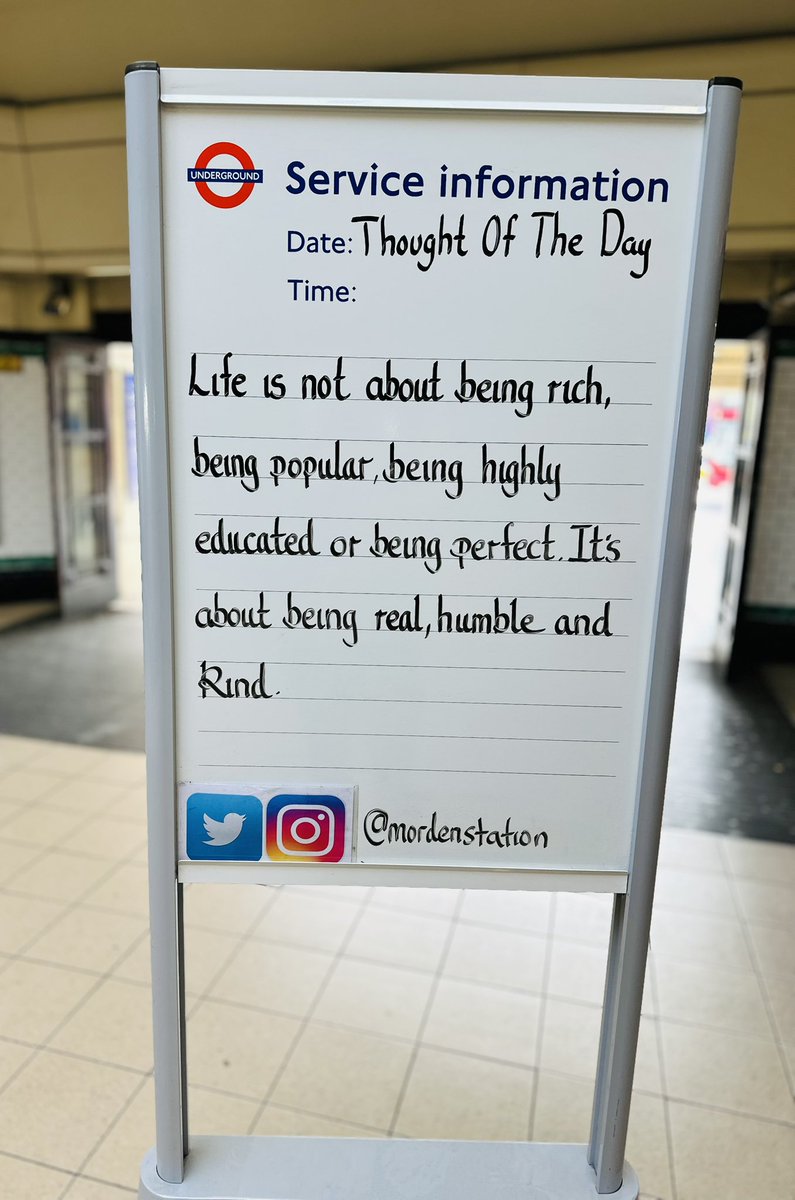 UNDERGROUND
Service information
Date: Thought Of The Day
Time:
Life is not about being rich,
being popular, being highly
educated or being perfect. It's
about being real, humble and
Kind.
@mordenstation